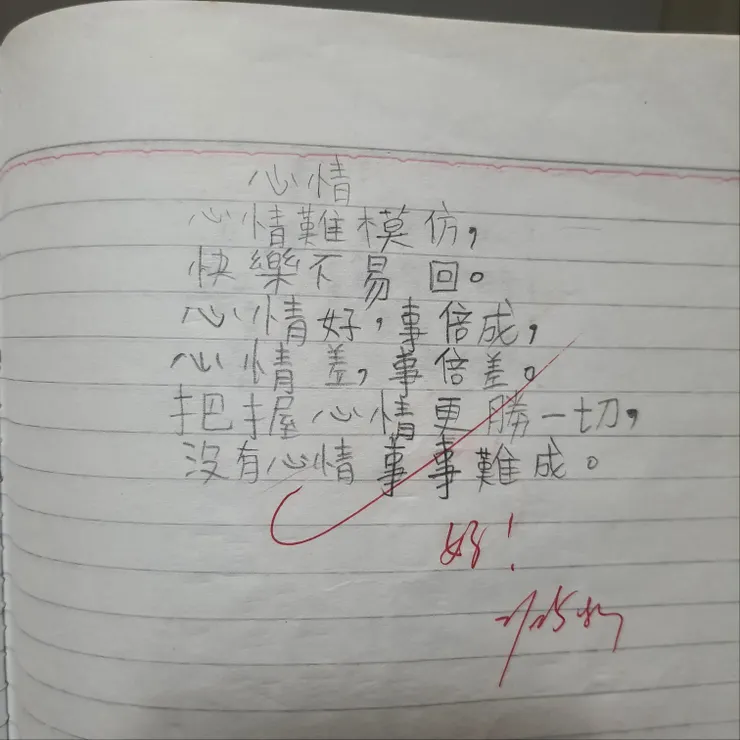 心情
心情難模仿，
快樂不易回。
心情好，事倍成，
心情差，事倍差。
把握心情更勝一切，
沒有心情事事難成。
好！